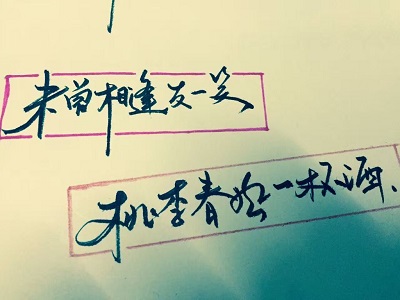 未曾相逢先一笑
桃李春风一杯酒、